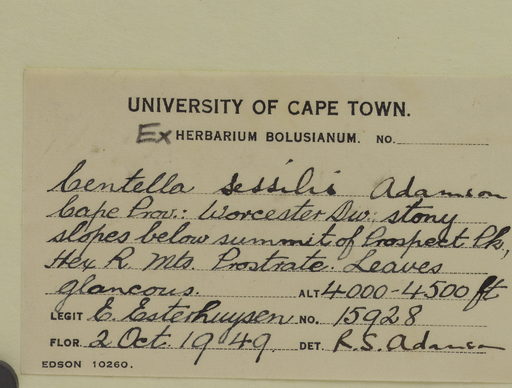 UNIVERSITY OF CAPE TOWN.
Ex HERBARIUM BOLUSIANUM. NO.
Centella sessilis Adamson
Cape Prov.: Worcester Div.; stony
slopes below summit of Prospect Pk,
Hex R. Mts. Prostrate. Leaves
glaucous. ALT 4000-4500 ft
LEGIT E. Esterhuysen NO. 15928
FLOR. 2 Oct. 1949. DET. R.S. Adamson
EDSON 10260.